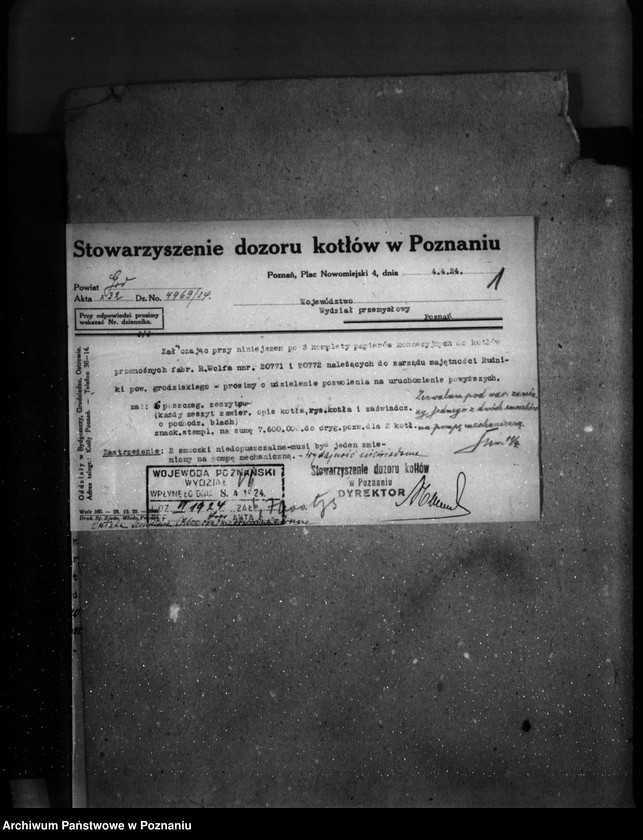 Stowarzyszenie dozoru kotłów w Poznaniu
Poznań, Plac Nowomiejski 4, dnia 4.4.24.
1
Powiat
Akta 232 Dz. No. 4969/24.
Przy odpowiedzi prosimy
wskazać Nr. dziennika.
Województwo
Wydział przemysłowy
Poznań
Załączając przy niniejszem po 3 komplety papierów koncesyjnych do kotłów
przenośnych fabr. R.Wolfa nmr. 20771 i 20772 należących do zarządu majętności Ruśni-
ki pow. grodziskiego - prosimy o udzielenie pozwolenia na uruchomienie powyższych.
zał: 6 poszczeg. zeszytów
(każdy zeszyt zawier. opis kotła, rys. kotła i zaświadcz.
o pochodz. blach)
znack. stempl. na sumę 7.600.000.do oryg. poz. dla 2 kotł.
Zezwalam pod war. zamia
ny jednego z dwóch smoczków
na pompę mechaniczną.
Zastrzeżenie: 2 smoczki niedopuszczalne-musi być jeden zmie-
niony na pompę mechaniczną. -
WOJEWODA POZNAŃSKI
WYDZIAŁ
WPŁYNĘŁO DNIA 8. 4. 1924.
L. DZ. 1924 ZAŁ.
AKTA
Stowarzyszenie dozoru kotłów
w Poznaniu
DYREKTOR
Oddziały w Bydgoszczy, Grudziądzu, Ostrowie.
Adres telegr. Kotły Poznań. — Telefon 30-14.
Archiwum Państwowe w Poznaniu